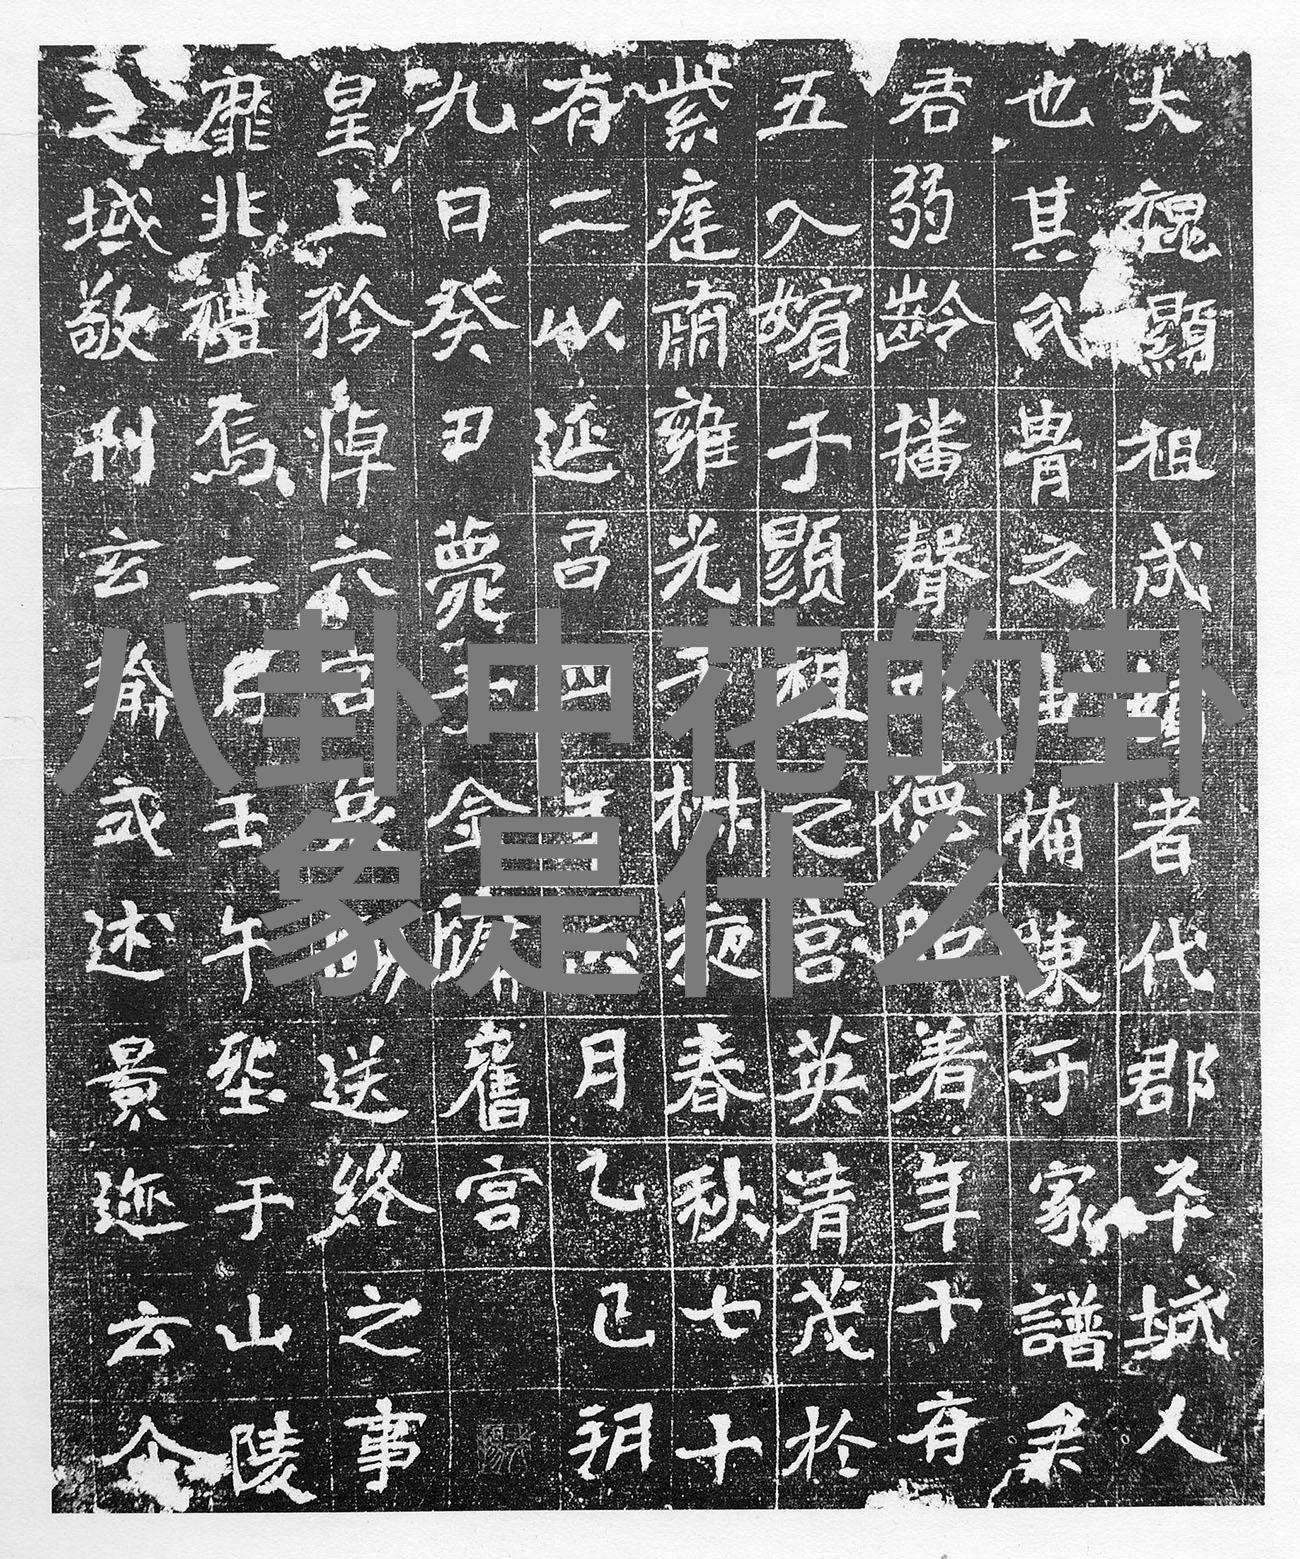 大魏顯祖成嬪者代郡平城人
也其氏胄之由備陳于家譜
君弱齡播聲德昭着年十有
五入嬪于顯祖之宮英清茂於
紫庭肅雍光于椒掖春秋七十
有二以延昌四年正月乙巳朔
九日癸丑薨于金墉舊宮
皇上矜悼六宮哀慟送終之事
靡非禮焉二月壬午葬于山陵
之域敬刊玄瑜式述景迹云尒
八卦中花的卦
象是什么